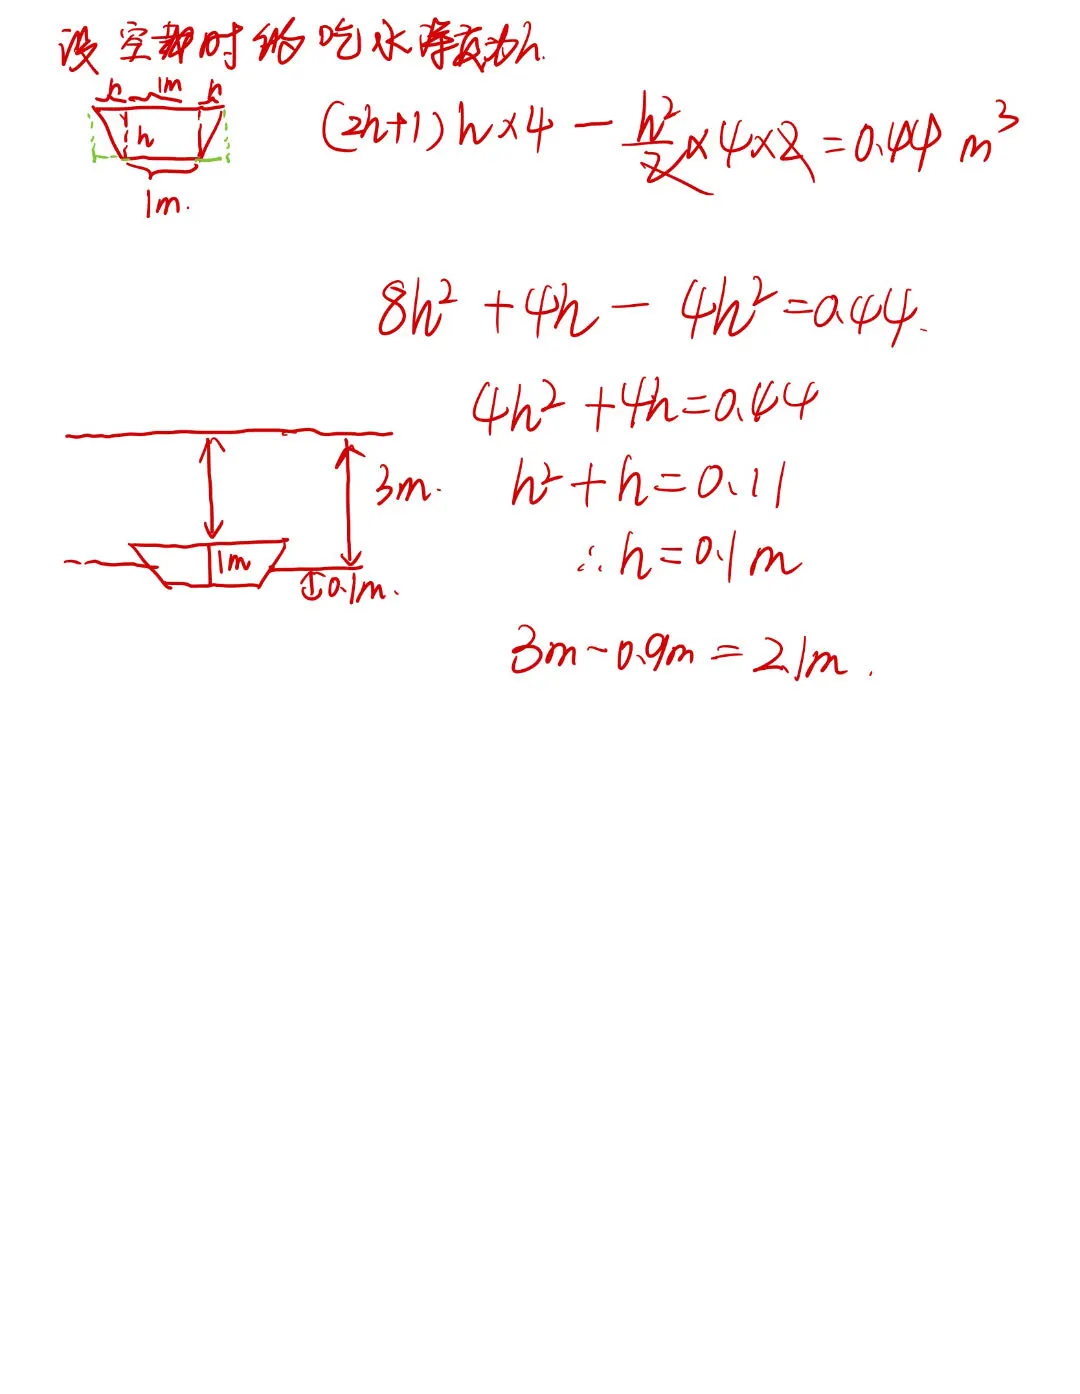 设空船时船吃水深度为h.
h 1m h
h
1m.
(2h+1)h×4 - h²/2 ×4×2 = 0.44 m³
8h² + 4h - 4h² = 0.44.
4h² + 4h = 0.44
h² + h = 0.11
∴ h = 0.1m
3m.
1m
0.1m.
3m - 0.9m = 2.1m.